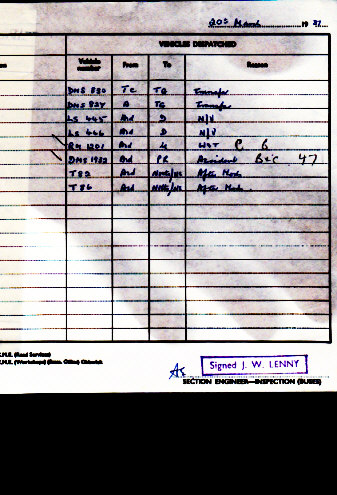 20th March 19
VEHICLES DISPATCHED
Vehicle number From To Reason
DMS 820 TC TG Transfer
DMS 827 A TG Transfer
LS 445 Ard D N/V
LS 446 Ard D N/V
RM 1201 Ard W HGT R 6
DMS 1932 Ard PR Accident B&C 47
T82 Ard After Mod.
T86 Ard After Mod.
C.M.E. (Road Services)
C.M.E. (Workshops) (Bass. Office) Chiswick
Signed J. W. LENNY
SECTION ENGINEER—INSPECTION (BUSES)